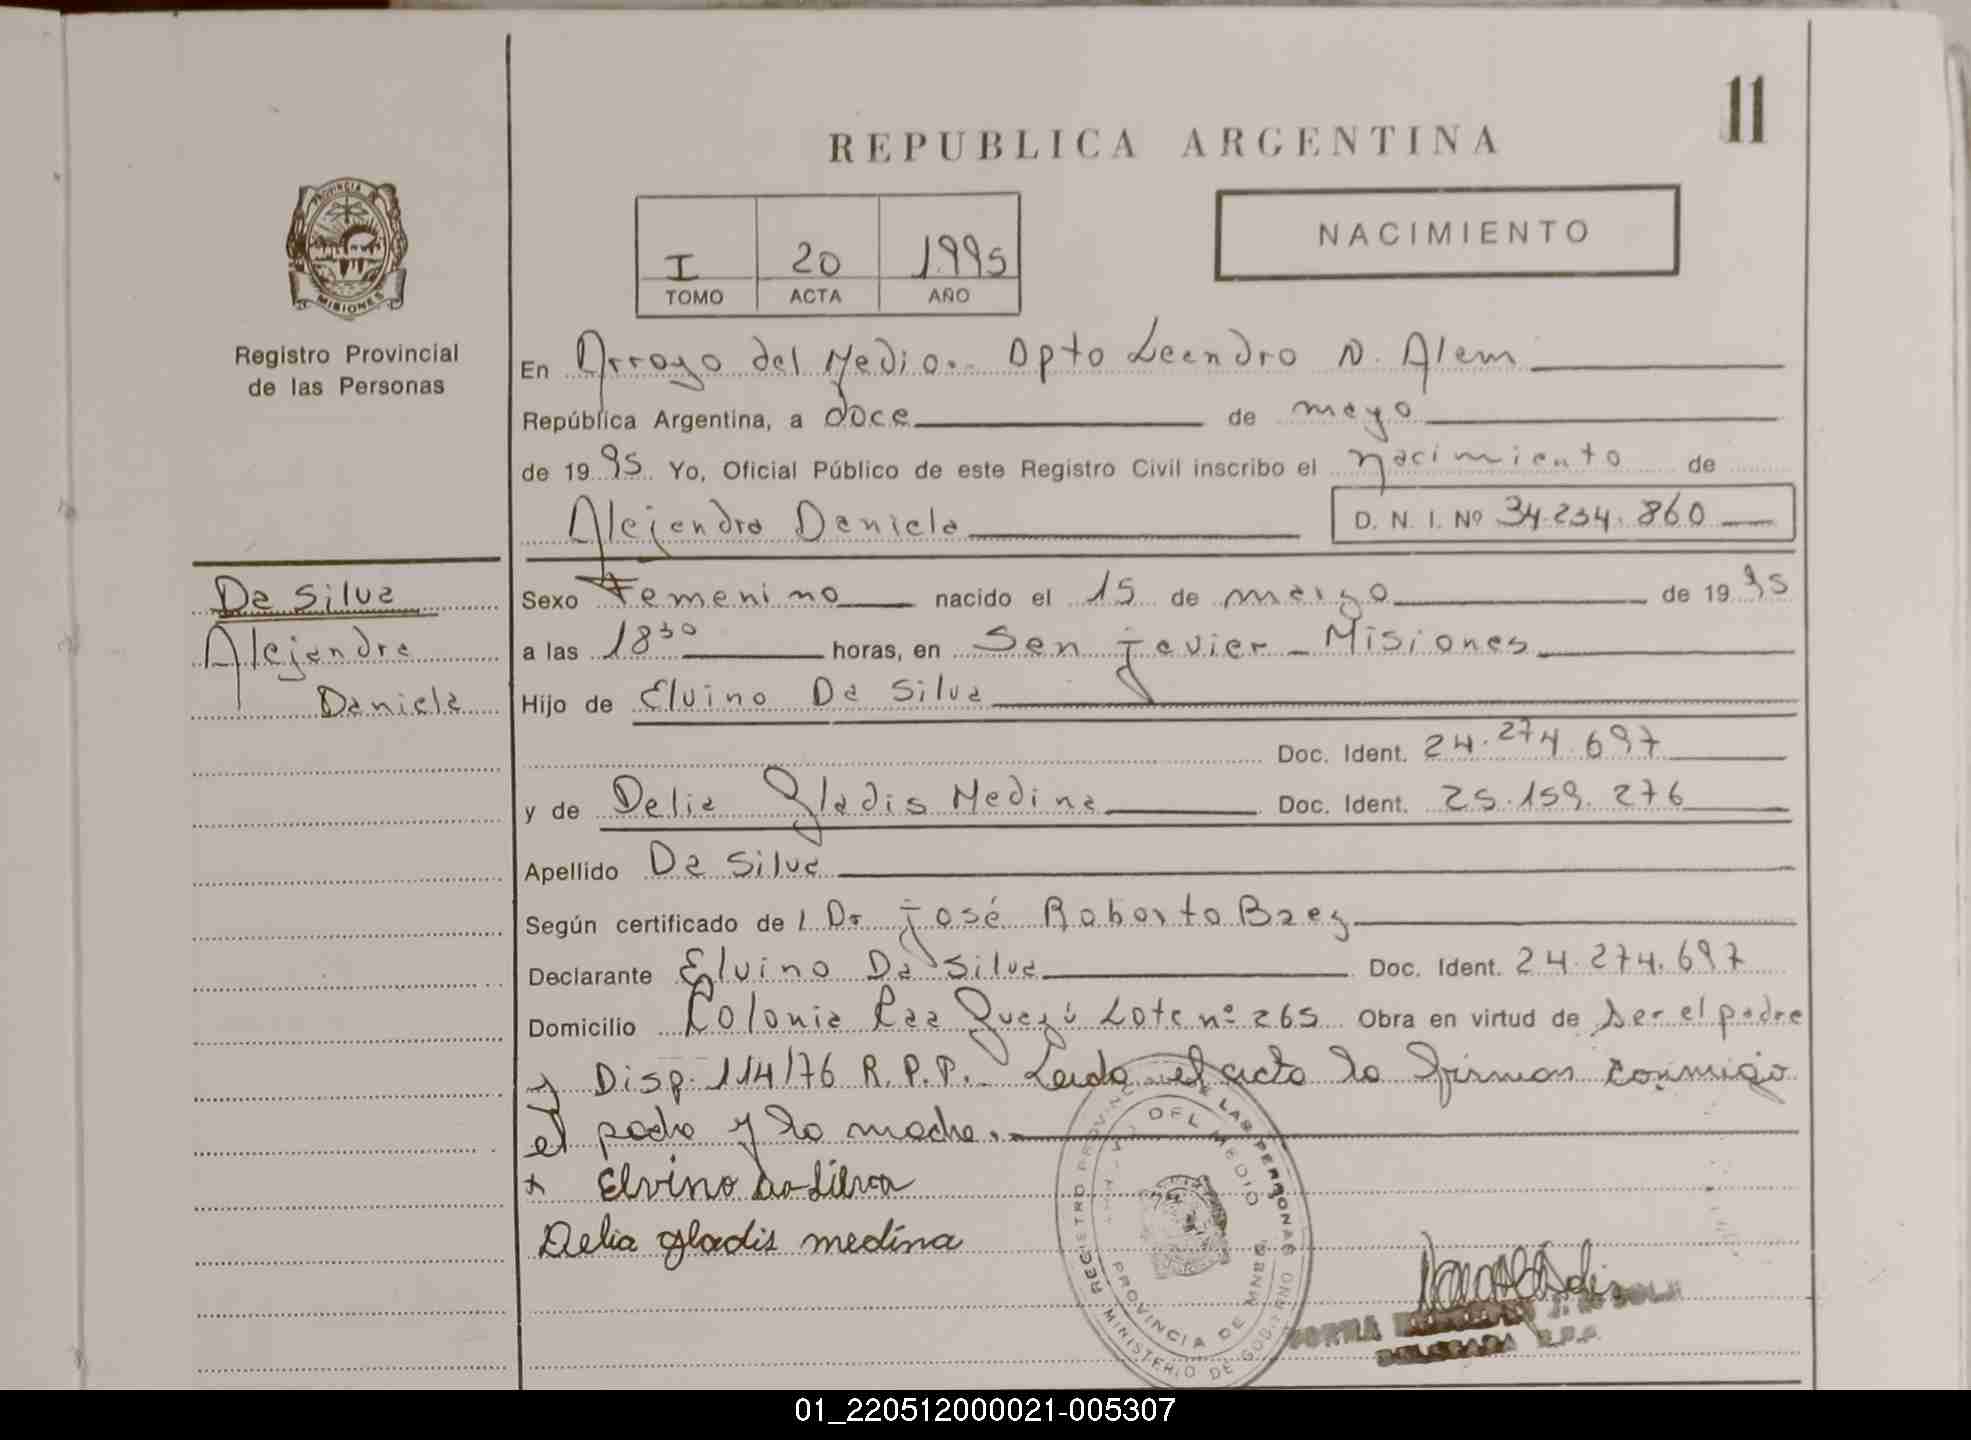 11
REPUBLICA ARGENTINA
PROVINCIA
MISIONES
Registro Provincial
de las Personas
NACIMIENTO
I 20 1995
TOMO ACTA AÑO
En Arroyo del Medio.- Dpto Leandro N. Alem
República Argentina, a doce de mayo
de 1995 Yo, Oficial Público de este Registro Civil inscribo el nacimiento de
Alejandra Daniela
D. N. I. Nº 34.234.860
Da Silva
Alejandra
Daniela
Sexo Femenino nacido el 15 de marzo de 1995
a las 18³⁰ horas, en San Javier - Misiones
Hijo de Elvino Da Silva
Doc. Ident. 24.274.697
y de Delia Gladis Medina Doc. Ident. 25.159.276
Apellido Da Silva
Según certificado de / Dr José Roberto Baez
Declarante Elvino Da Silva Doc. Ident. 24.274.697
Domicilio Colonia Lote nº 265 Obra en virtud de ser el padre
y Disp. 114/76 R.P.P.- Leida el acta la firman conmigo
el padre y la madre.
x Elvino da Silva
Delia Gladis medina
REGISTRO PROVINCIAL DE LAS PERSONAS
DEL MEDIO
PROVINCIA DE MNES.
MINISTERIO DE GOBIERNO
NORMA
DELEGADA R.P.P.
01_220512000021-005307